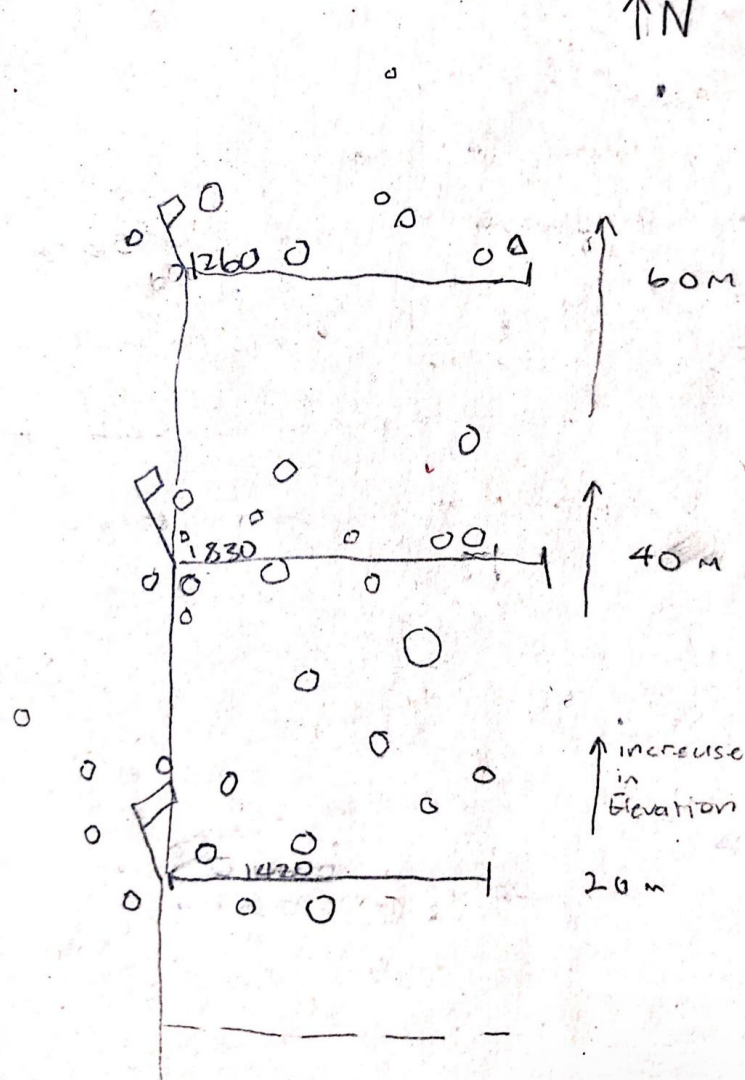 ↑N
1260
60M
1830
40 M
increase
in
Elevation
1420
20 m